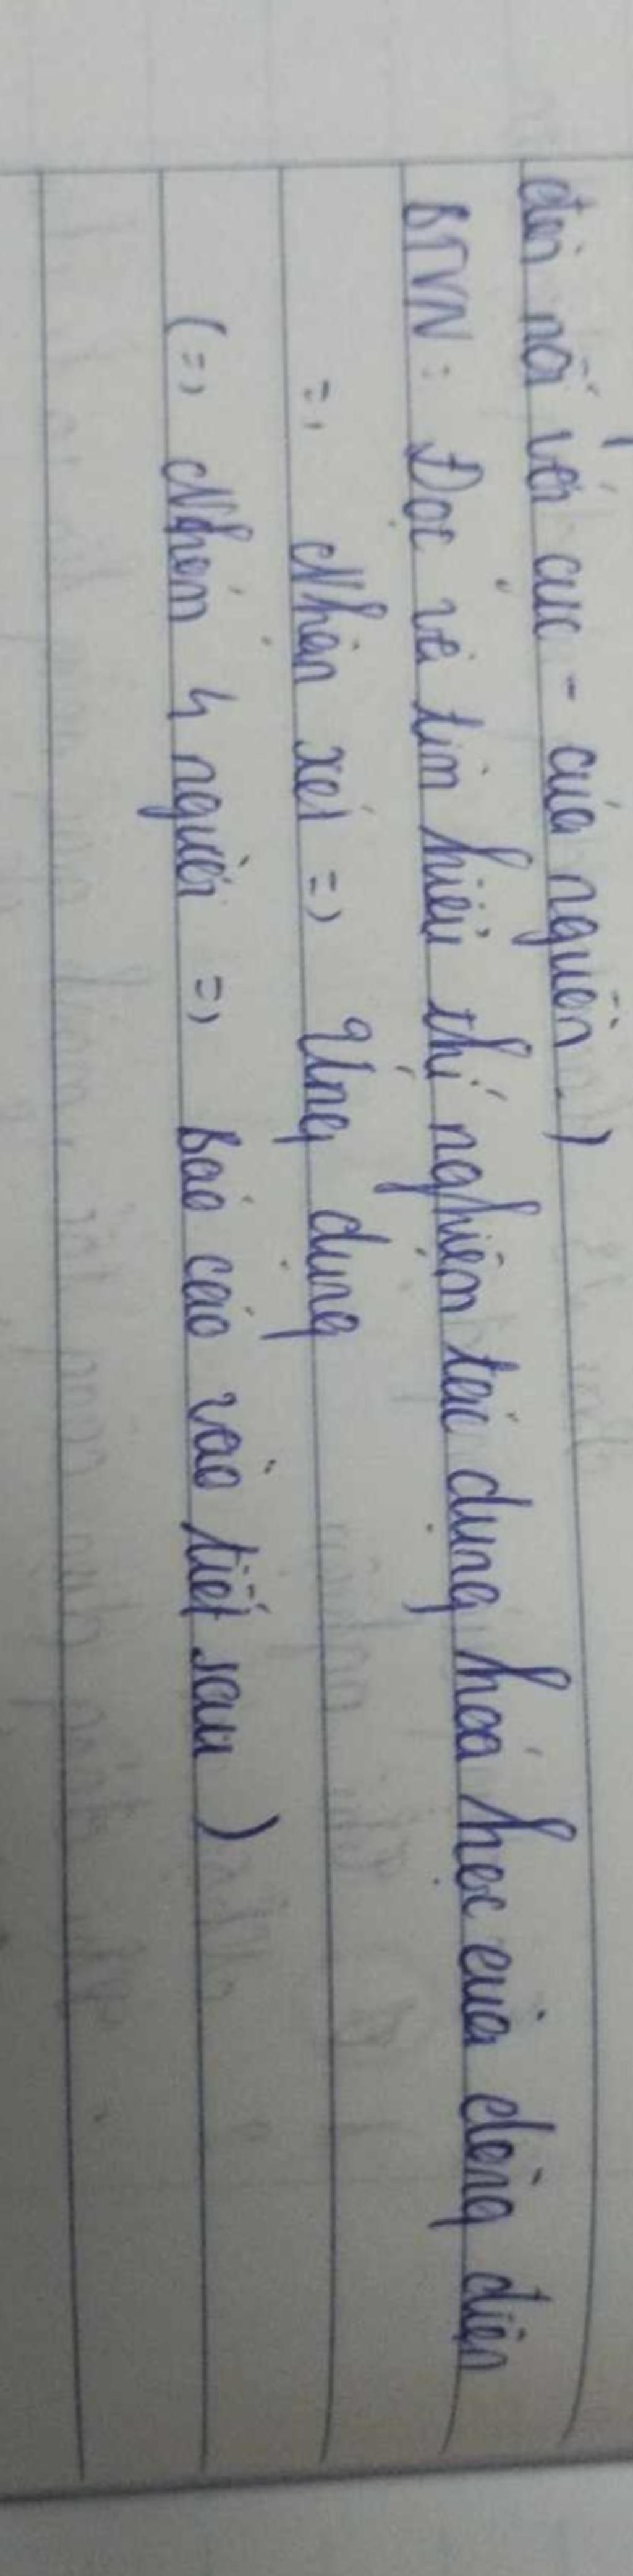 đèn nối với cực - của nguồn.)
BTVN: Đọc và tìm hiểu thí nghiệm tác dụng hoá học của dòng điện
=> Nhận xét => Ứng dụng
(=> Nhóm 4 người => Báo cáo vào tiết sau)